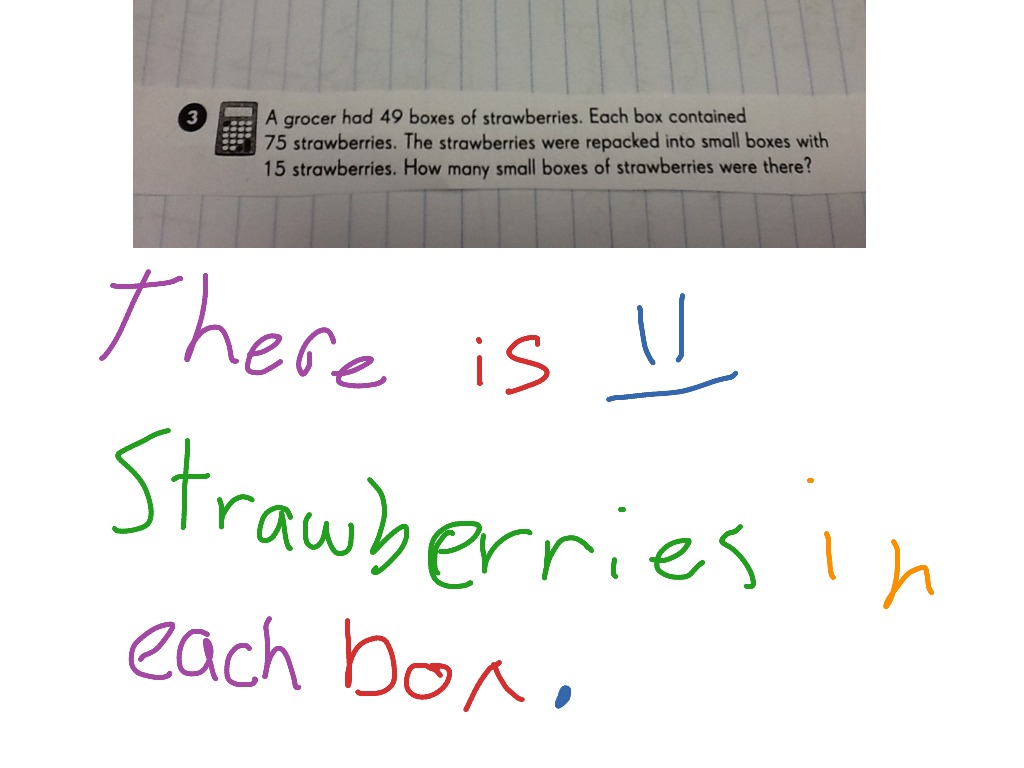 3 A grocer had 49 boxes of strawberries. Each box contained
75 strawberries. The strawberries were repacked into small boxes with
15 strawberries. How many small boxes of strawberries were there?
There is 11
Strawberries in
each box.